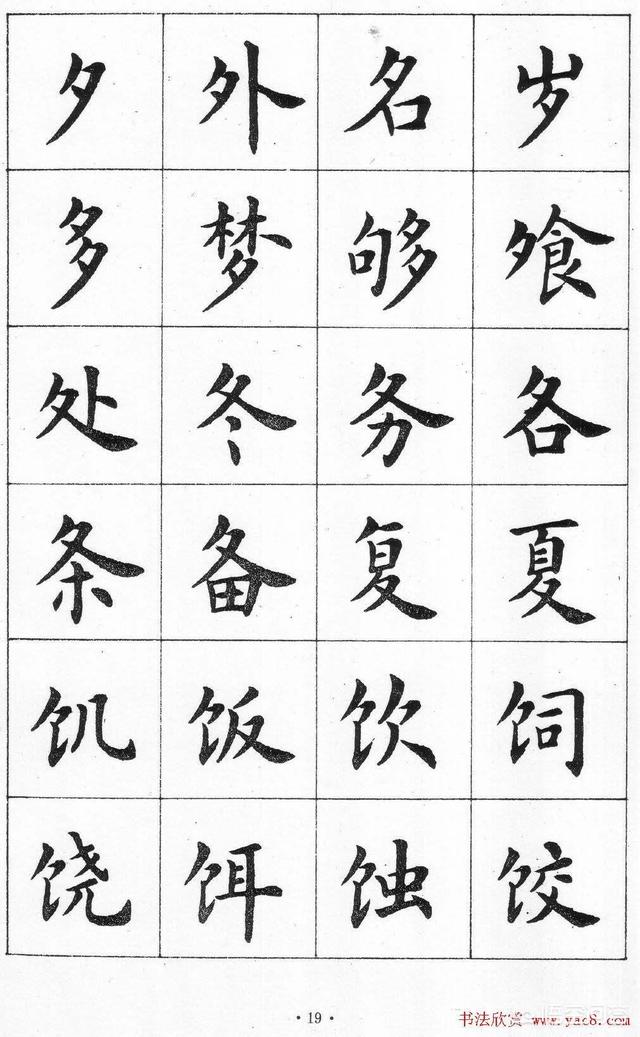 夕 外 名 岁
多 梦 够 飧
处 冬 务 各
条 备 复 夏
饥 饭 饮 饲
饶 饵 蚀 饺
·19·
书法欣赏 www.yac8.com